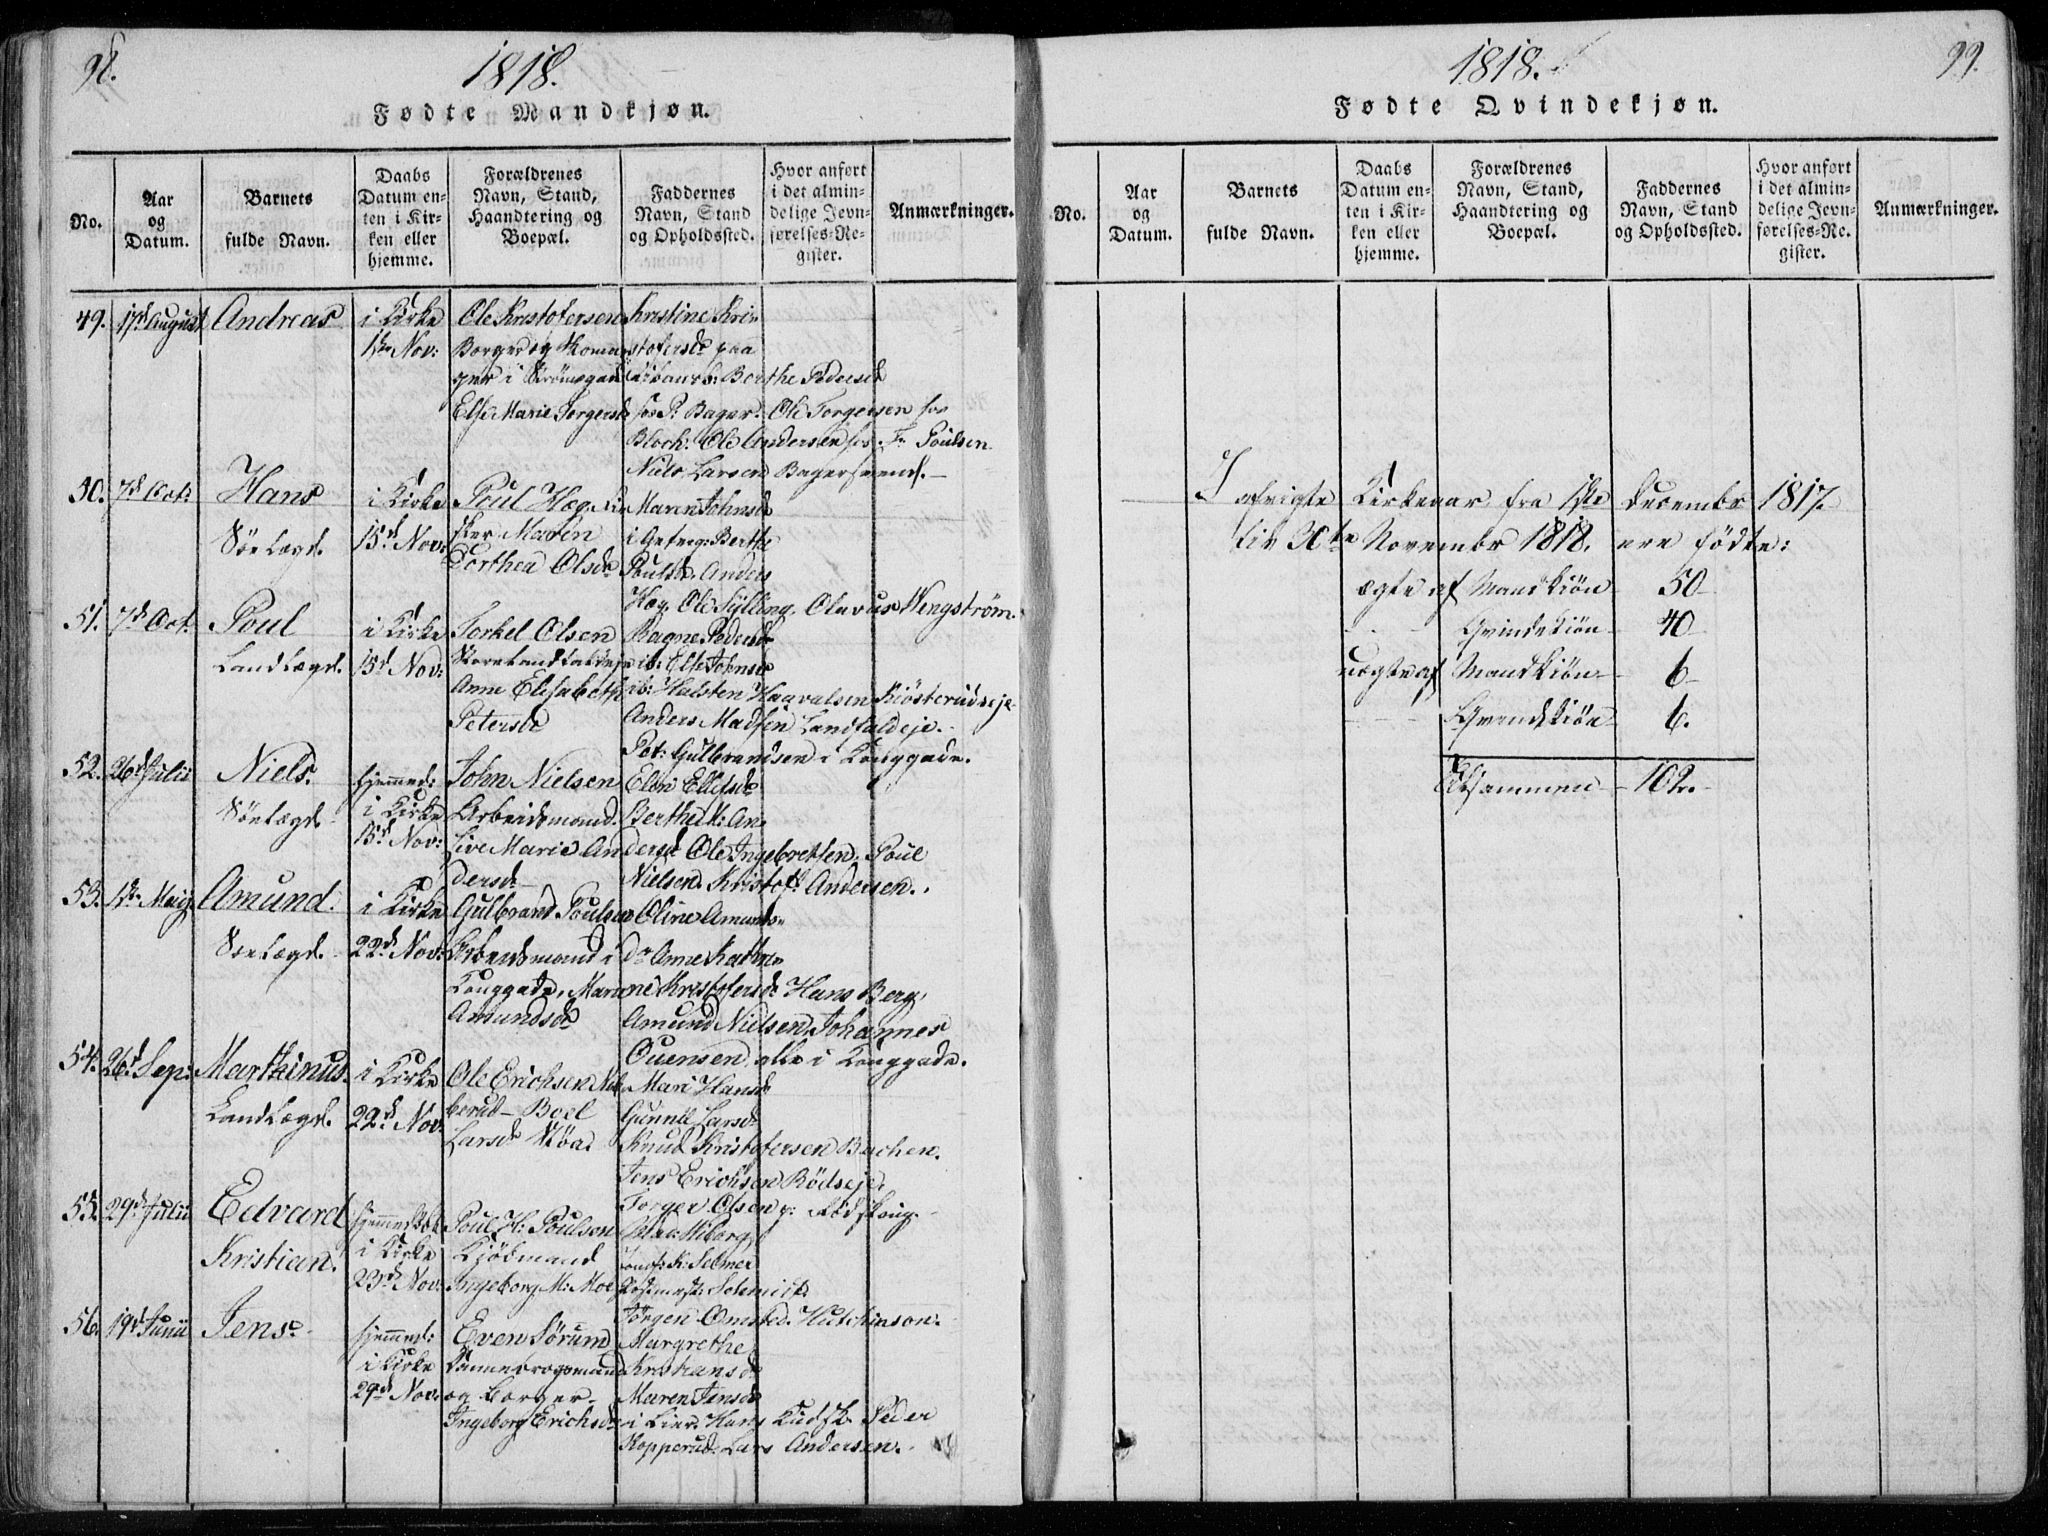 98.
1818.
Fødte Mandkjøn.
No.
Aar
og
Datum.
Barnets
fulde Navn.
Daabs
Datum en-
ten i Kir-
ken eller
hjemme.
Forældrenes
Navn, Stand,
Haandtering og
Boepæl.
Faddernes
Navn, Stand
og Opholdssted.
Hvor anført
i det almin-
delige Jevn-
førelses-Re-
gister.
Anmærkninger.
49.
17d August
Andreas
i Kirke
1ste Nov:
Ole Kristofersen
Borger og
i Strömsgad
Else Marie Torgersd
Kristine Kri-
stofersd paa
Berthe Pedersd
hos P: Bager. Ole Torgersen hos
Bloch: Ole Andersen hos Fr. Poulsen
Niels Larsen Bagersvend.
50.
7d Oct:
Hans
Sölægd.
i Kirke
15d Nov:
Poul Hæg
Maren
Dorthea Olsd
Maren Johnsd
Berthe
Poulsd. Anders
Hæg. Ole Sylling. Olavus Wengström.
51.
7d Oct.
Poul
Landlægd.
i Kirke
15d Nov:
Torkel Olsen
Anne Elisabeth
Petersd
Ragne Pedersd
ib: Else Johnsd
ib: Halsten Haavalsen Kiösterudeje
Anders Madsen Landfaldeje.
Pet: Gulbrandsen i Konggade.
52.
26d Julii
Niels
Sölægd.
hjemmed:
i Kirke
15d Nov:
John Nielsen
Arbeidsmand.
Live Marie An
dersd
Elen Ellefsd
Berthe M: An-
dersd Ole Ingebretsen. Poul
Nielsen. Kristoff: Andersen.
53.
1ste Maij
Amund.
Sölægd.
i Kirke
22d Nov:
Gulbrand Poulsen
Arbeidsmand i
Konggade, Marie
Amundsd
Oline Amunds-
dr Anne Kathri-
ne Kristofersd. Hans Berg,
Amund Nielsen, Johannes
Ouensen alle i Konggade.
54.
26d Sep:
Marthinus.
Landlægd.
i Kirke
22d Nov:
Ole Erichsen
Boel
Larsd
Mari Hansd
Gunnil Larsd
Knud Kristofersen Bachen.
Jens Erichsen Rödseje.
Torger Olsen
55.
29d Julii
Edvard
Kristian.
i Kirke
23d Nov:
Poul H: Poulson
Kjöbmand
Ingeborg M: Moe
Wiborg
Jomf: K: Selmer
Postmest: Schmidt
Jörgen Omsted. Hutchinson.
56.
19d Junii
Jens
hjemmed:
i Kirke
29d Nov:
Even Sörum
Dannebrogsmand
og Borger
Ingeborg Erichsd
Margrethe
Kristiansd
Maren Jensd
i Lier. Hans Kudsk. Peder
Kopperud. Lars Andersen.
1818.
99.
Fødte Qvindekjøn.
No.
Aar
og
Datum.
Barnets
fulde Navn.
Daabs
Datum en-
ten i Kir-
ken eller
hjemme.
Forældrenes
Navn, Stand,
Haandtering og
Boepæl.
Faddernes
Navn, Stand
og Opholdssted.
Hvor anført
i det almin-
delige Jevn-
førelses-Re-
gister.
Anmærkninger.
I afvigte Kirkeaar fra 1ste Decembr 1817.
til 30te Novembr 1818. ere födte:
ægte af Mandkiön 50
Qvindekiön 40
uægte af Mandkiön 6
Qvindekiön 6.
Tilsammen 102.